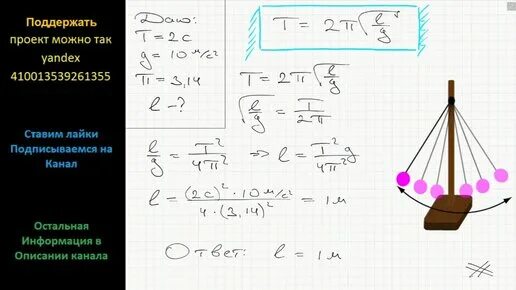 Поддержать
проект можно так
yandex
410013539261355
Ставим лайки
Подписываемся на
Канал
Остальная
Информация в
Описании канала
Дано:
T = 2 c
g = 10 м/с²
π = 3,14
l - ?
T = 2π√(l/g)
T = 2π√(l/g)
√(l/g) = T/2π
l/g = T²/4π² => l = T²g/4π²
l = (2c)² · 10 м/с² / 4 · (3,14)² = 1 м
Ответ: l = 1 м